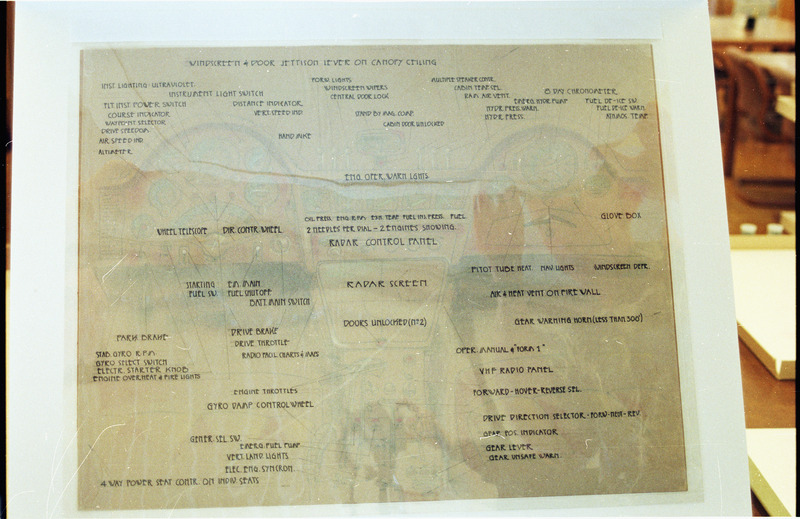 WINDSCREEN & DOOR JETTISON LEVER ON CANOPY CEILING
INST. LIGHTING - ULTRAVIOLET
INSTRUMENT LIGHT SWITCH
FLT. INST. POWER SWITCH
COURSE INDICATOR
WAYPOINT SELECTOR
DRIVE SPEEDOM.
AIR SPEED IND
ALTIMETER
DISTANCE INDICATOR,
VERT. SPEED IND
HAND MIKE
FORW. LIGHTS
WINDSCREEN WIPERS
CENTRAL DOOR LOCK
STAND BY MAG. COMP.
CABIN DOOR UNLOCKED
MULTIPLE SPEAKER CONTR.
CABIN TEMP. SEL.
RAM AIR VENT.
EMERG. HYDR. PUMP
HYDR. PREG. WARN.
HYDR. PRESS.
8 DAY CHRONOMETER
FUEL DE-ICE SW.
FUEL DE-ICE WARN.
ATMOS. TEMP
ENG. OPER. WARN LIGHTS
OIL PRESS. ENG. R.P.M. EXH. TEMP. FUEL INJ. PREG. FUEL
2 NEEDLES PER DIAL - 2 ENGINES SHOWING.
RADAR CONTROL PANEL
GLOVE BOX
WHEEL TELESCOPE
DIR. CONTR. WHEEL
PITOT TUBE HEAT. NAV LIGHTS WINDSCREEN DEFR.
STARTING
FUEL SW.
EM. MAIN
FUEL SHUT OFF
BATT. MAIN SWITCH
RADAR SCREEN
AIR & HEAT VENT ON FIRE WALL
DOORS UNLOCKED (Nº2)
GEAR WARNING HORN (LESS THAN 300')
PARK. BRAKE
DRIVE BRAKE
DRIVE THROTTLE
RADIO FACIL. CHARTS & MAPS
STAB. GYRO R.P.M.
GYRO SELECT SWITCH
ELECTR. STARTER KNOB
ENGINE OVERHEAT & FIRE LIGHTS
OPER. MANUAL & "FORM 1"
VHF RADIO PANEL
FORWARD - HOVER - REVERSE SEL.
ENGINE THROTTLES
GYRO DAMP CONTROL WHEEL
DRIVE DIRECTION SELECTOR - FORW - NEU - REV
GEAR POS. INDICATOR
GEAR LEVER
GEAR UNSAFE WARN.
GENER. SEL. SW.
EMERG. FUEL PUMP
VERT. LAND LIGHTS
ELEC. ENG. SYNCRON.
4 WAY POWER SEAT CONTR. ON INDIV. SEATS